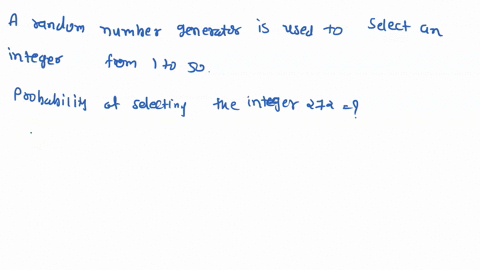 A random number generator is used to select an
integer from 1 to 50.
Probability of selecting the integer 272 = ?